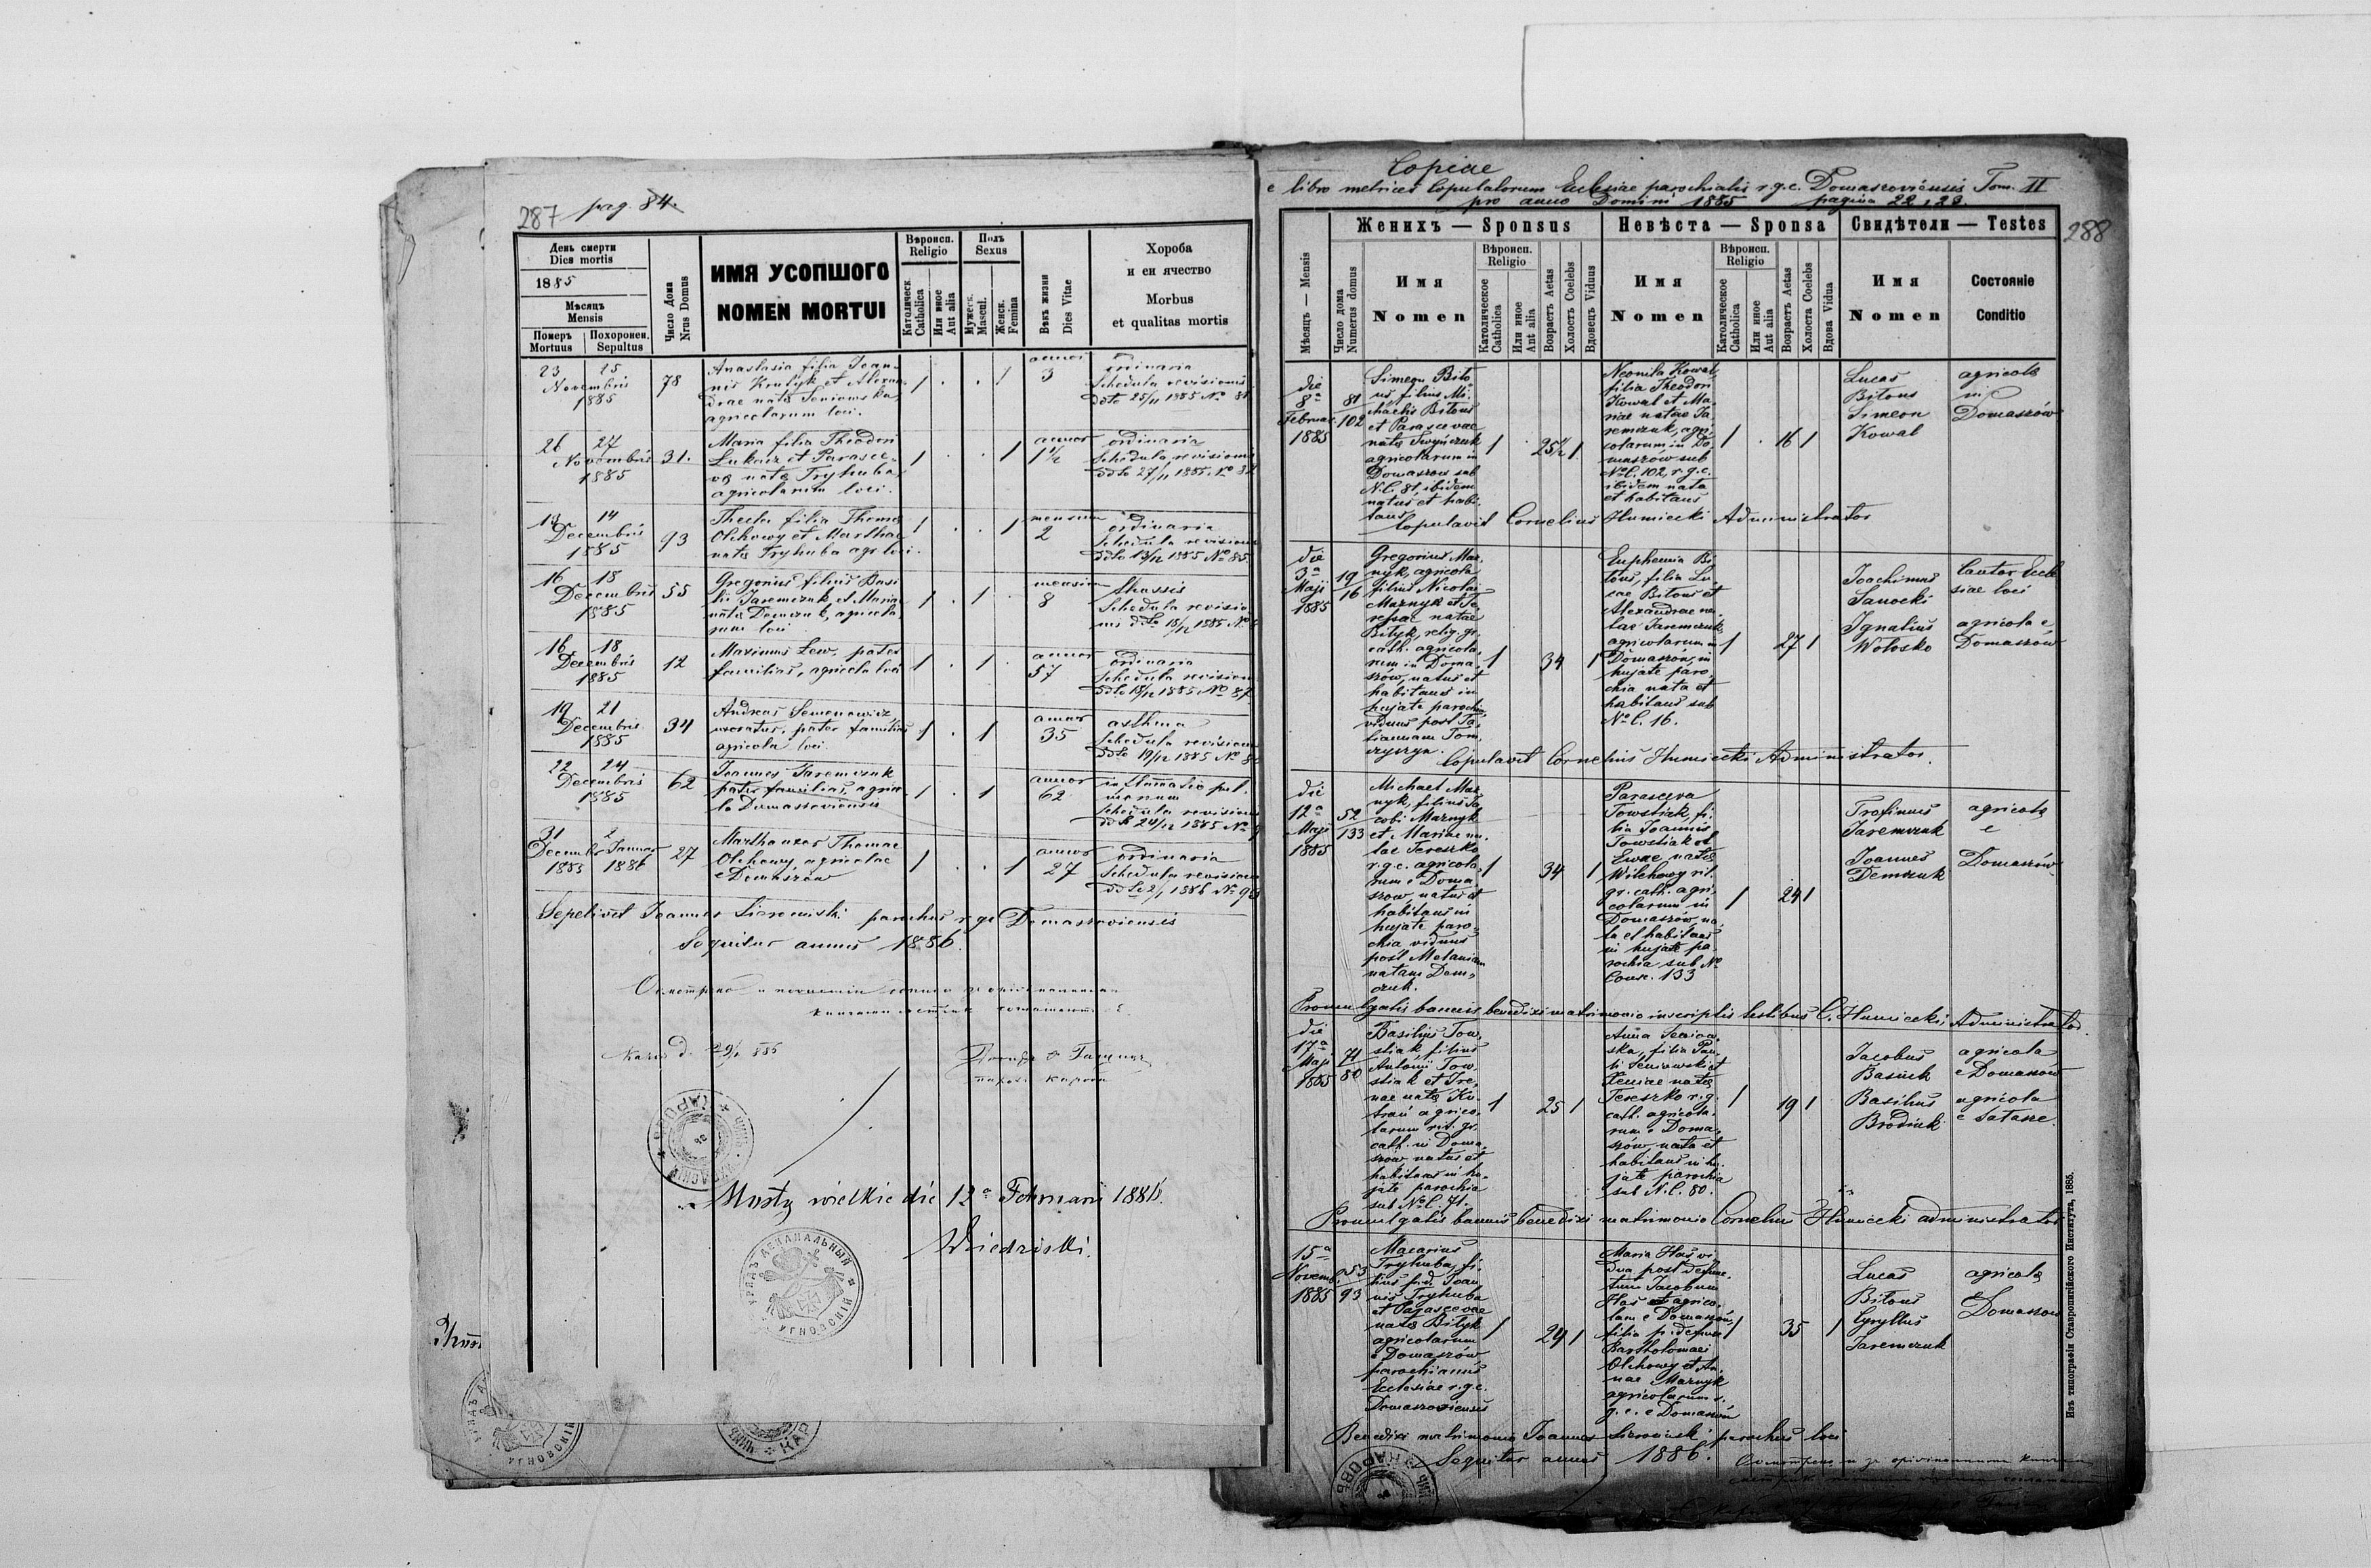 287 pag. 84.
День смерти
Dies mortis
1885
Мѣсяцъ
Mensis
Померъ
Mortuus
Похоронен.
Sepultus
Число Дома
Nrus Domus
ИМЯ УСОПШОГО
NOMEN MORTUI
Вѣроисп.
Religio
Католическ.
Catholica
Или иное
Aut alia
Полъ
Sexus
Мужеск.
Mascul.
Женск.
Femina
Вѣкъ жизни
Dies Vitae
Хороба
и еи ячество
Morbus
et qualitas mortis
23 25
Novembris
1885
78
Anastasia filia Joan-
nis Krutyk et Alexan-
drae natae Seniowska
agricolarum loci.
1 . . 1
annor
3
ordinaria
Schedula revisionis
ddto 25/11 1885 No 81
26 27
Novembris
1885
31.
Maria filia Theodori
Lukacz et Parasce-
vae natae Tryhuba
agricolarum loci.
1 . . 1
annor
1 1/2
ordinaria
Schedula revisionis
ddto 27/11 1885 No
14
Decembris
1885
93
Thecla filia Thomae
Olchowy et Marthae
natae Tryhuba agr loci.
1 . . 1
mensium
2
ordinaria
Schedula revisionis
ddto 13/12 1885 No 85.
16 18
Decembris
1885
55
Gregorius filius Basi-
lii Jaremczuk et Mariae
natae Demczuk, agricola-
rum loci
1 . 1 .
mensium
8
Schedula revisio-
nis ddto 18/12 1885 No
16 18
Decembris
1885
12
Maximus Lew, pater
familias, agricola loci
1 . 1
annor
57
ordinaria
Schedula revision
ddto 18/12 1885 No 87.
19 21
Decembris
1885
34
Andreas Semenowicz
uxoratus, pater familias
agricola loci
1 . 1
annor
35
asthma
Schedula revision
ddto 19/12 1885 No
22 24
Decembris
1885
62
Joannes Jaremczuk
pater familias, agrico-
la Domaszoviensis
1 . 1
annor
62
inflamatio pul-
monum
Schedula revisionis
ddto 24/12 1885 No
31 2
Decembr Januar
1885 1886
27
Martha uxor Thomae
Olchowy agricolae
e Domaszów
1 . . 1
annor
27
ordinaria
Schedula revision
ddto 2/1 1886 No 90
Sepelivit Joannes parochus r.gc Domaszoviensis
Sequitur annus 1886.
Mosty wielkie die 12a Februarii 1886.
УРЯДЪ ДЕКАНАЛЬНЫЙ
УГНОВСКІЙ
Copiae
e libro metrices Copulatorum Eclesiae parochialis r.g.c. Domaszoviensis Tom. II
pro anno Domini 1885 pagina 22, 23.
288
Мѣсяцъ — Mensis
Число дома
Numerus domus
Женихъ — Sponsus
Имя
Nomen
Вѣроисп.
Religio
Католическое
Catholica
Или иное
Ant alia
Возрастъ Aetas
Холостъ Coelebs
Вдовецъ Viduus
Невѣста — Sponsa
Имя
Nomen
Вѣроисп.
Religio
Католическое
Catholica
Или иное
Aut alia
Возрастъ Aetas
Холоста Coelebs
Вдова Vidua
Свидѣтели — Testes
Имя
Nomen
Состояніе
Conditio
die
8a
Februar.
1885
81
102
Simeon Bito-
us, filius Mi-
chaelis Bitous
et Parascevae
natae Iwyńczuk
agricolarum in
Domaszow sub
N.C. 81, ibidem
natus et habi-
tans
1 . 25 1/2 1
Neonila Kowal
filia Theodori
Kowal et Ma-
riae natae Ja-
remczuk, agri-
colarum in Do-
maszów sub
No C. 102, r.g.c.
ibidem nata
et habitans
1 . 16 1
Lucas
Bitous
Simeon
Kowal
agricolae
in
Domaszów
Copulavit Cornelius Humiecki Administrator
die
3a
Maji
1885
19
16
Gregorius Mar-
nyk, agricola
filius Nicolai
Maznyk et Te-
resae natae
Bityk, relig. gr.
cath. agricola-
rum in Doma-
szow, natus et
habitans in
hujate parochia
viduus post Ta-
tiannam Tom-
czyszyn.
1 34 1
Euphemia Bi-
tous, filia Lu-
cae Bitous et
Alexandrae na-
tae Jaremczuk
agricolarum in
Domaszów, in
hujate paro-
chia nata et
habitans sub
No C. 16.
1 27 1
Joachimus
Sanocki
Ignatius
Wołosko
Cantor Eccle-
siae loci
agricola e
Domaszów
Copulavit Cornelius Humiecki Administrator.
die
12a
Maji
1885
52
133
Michael Maz-
nyk, filius Ja-
cobi Maznyk
et Mariae na-
tae Tereszko
r.g.c. agricola-
rum e Doma-
szow, natus et
habitans in
hujate paro-
chia viduus
post Melaniam
natam Dem-
czuk.
1 34 1
Parasceva
Towstiak, fi-
lia Joannis
Towstiak et
Ewae natae
Wilchowy rit.
gr. cath. agri-
colarum in
Domaszów, na-
ta et habitans
in hujate pa-
rochia sub No
Conscr. 133
1 24 1
Trofimus
Jaremczuk
Joannes
Demczuk
agricolae
e
Domaszów
Promulgatis bannis benedixi matrimonio inscriptis testibus C. Humiecki Administrator.
die
17a
Maji
1885
71
80
Basilius Tow-
stiak, filius
Antonii Tow-
stiak et Ire-
nae natae Ku-
trań agrico-
larum rit. gr.
cath. in Doma-
szów natus et
habitans in hu-
jate parochia
sub No C. 71.
1 25 1
Anna Seniow-
ska, filia Pau-
li Seniowski et
Xeniae natae
Tereszko r.g.
cath. agricola-
rum e Doma-
szów, nata et
habitans in hu-
jate parochia
sub N.C. 80.
1 19 1
Jacobus
Basiuk
Basilius
Brodiuk
agricola
e Domaszów
agricola
e Sałasze.
Promulgatis bannis benedixi matrimonio Cornelius Humiecki administrator
15a
Novemb.
1885
53
93
Macarius
Tryhuba, fi-
lius p.d. Joan-
nis Tryhuba
et Parascevae
natae Bityk
agricolarum
e Domaszów
parochianus
Ecclesiae r.g.c.
Domaszoviensis
1 24 1
Maria Has vi-
dua post defunc-
tum Jacobum
Has agrico-
lam e Domaszów,
filia p. defunc
Bartholomaei
Olchowy et An-
nae Maznyk
agricolarum r.
g. c. e Domaszów
1 35 1
Lucas
Bitous
Cyryllus
Jaremczuk
agricolae
e
Domaszow
Benedixi matrimonio Joannes parochus loci
Sequitur annus 1886.
Изъ типографіи Ставропигійского Института, 1885.